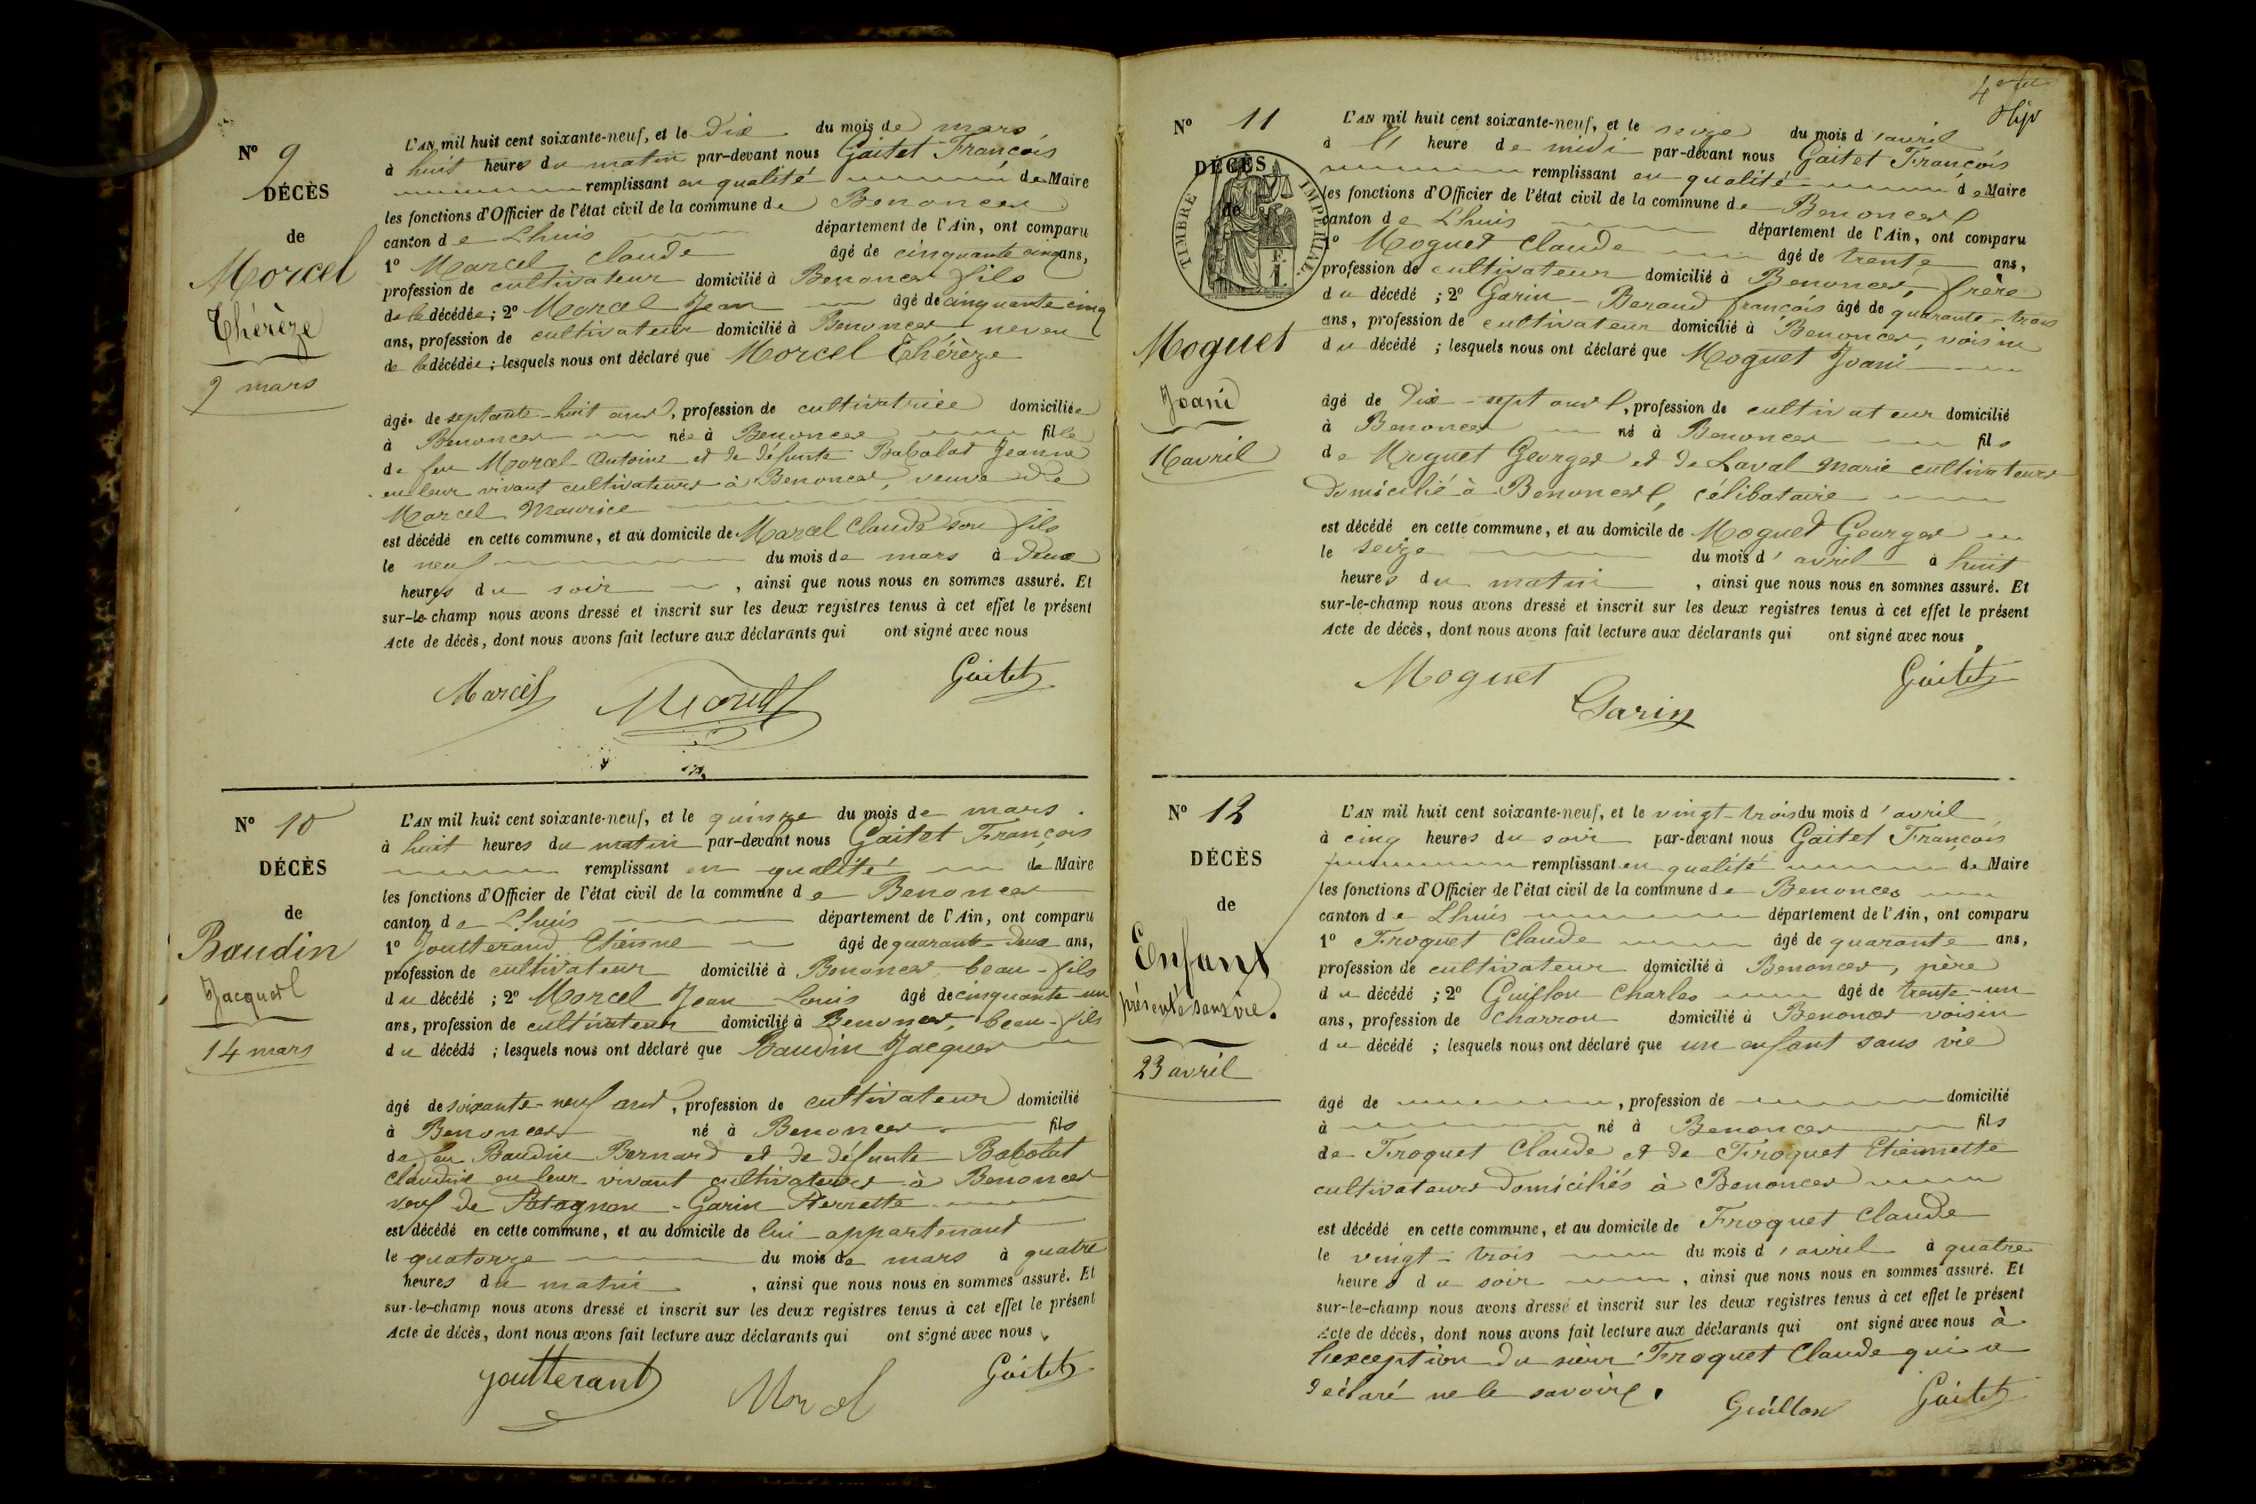 N° 9
DÉCÈS
de
Morcel
Thérèze
9 mars
L'AN mil huit cent soixante-neuf, et le dix du mois de mars
à huit heures du matin par-devant nous Gaitet François
remplissant en qualité de Maire
les fonctions d'Officier de l'état civil de la commune de Benonces
canton de Lhuis département de l'Ain, ont comparu
1° Marcel Claude âgé de cinquante cinq ans,
profession de cultivateur domicilié à Benonces fils
de la décédée ; 2° Morcel Jean âgé de cinquante cinq
ans, profession de cultivateur domicilié à Benonces neveu
de la décédée ; lesquels nous ont déclaré que Morcel Thérèze
âgée de septante-huit ans, profession de cultivatrice domiciliée
à Benonces née à Benonces fille
de feu Morcel Antoine et de défunte Babolat Jeanne
en leur vivant cultivateurs à Benonces, veuve de
Marcel Maurice
est décédé en cette commune, et au domicile de Marcel Claude son fils
le neuf du mois de mars à deux
heures du soir, ainsi que nous nous en sommes assuré. Et
sur-le-champ nous avons dressé et inscrit sur les deux registres tenus à cet effet le présent
Acte de décès, dont nous avons fait lecture aux déclarants qui ont signé avec nous
Marcel Morcel Gaitet
N° 10
DÉCÈS
de
Baudin
Jacques
14 mars
L'AN mil huit cent soixante-neuf, et le quinze du mois de mars
à huit heures du matin par-devant nous Gaitet François
remplissant en qualité de Maire
les fonctions d'Officier de l'état civil de la commune de Benonces
canton de Lhuis département de l'Ain, ont comparu
1° Joutterand Etienne âgé de quarante-deux ans,
profession de cultivateur domicilié à Benonces beau-fils
du décédé ; 2° Morcel Jean Louis âgé de cinquante-un
ans, profession de cultivateur domicilié à Benonces, beau-fils
du décédé ; lesquels nous ont déclaré que Baudin Jacques
âgé de soixante-neuf ans, profession de cultivateur domicilié
à Benonces né à Benonces fils
de feu Baudin Bernard et de défunte Babolat
Claudine en leur vivant cultivateurs à Benonces
veuf de Patagnon-Garin Pierrette
est décédé en cette commune, et au domicile de lui appartenant
le quatorze du mois de mars à quatre
heures du matin, ainsi que nous nous en sommes assuré. Et
sur-le-champ nous avons dressé et inscrit sur les deux registres tenus à cet effet le présent
Acte de décès, dont nous avons fait lecture aux déclarants qui ont signé avec nous
Joutterant Morcel Gaitet
N° 11
DÉCÈS
de
TIMBRE IMPÉRIAL
Moguet
Joani
16 avril
L'AN mil huit cent soixante-neuf, et le seize du mois d'avril
à l' heure de midi par-devant nous Gaitet François
remplissant en qualité de Maire
les fonctions d'Officier de l'état civil de la commune de Benonces
canton de Lhuis département de l'Ain, ont comparu
1° Moguet Claude âgé de trente ans,
profession de cultivateur domicilié à Benonces, frère
du décédé ; 2° Garin-Beraud françois âgé de quarante-trois
ans, profession de cultivateur domicilié à Benonces, voisin
du décédé ; lesquels nous ont déclaré que Moguet Joani
âgé de dix-sept ans, profession de cultivateur domicilié
à Benonces né à Benonces fils
de Moguet Georges et de Laval Marie cultivateurs
domicilié à Benonces, célibataire
est décédé en cette commune, et au domicile de Moguet Georges
le seize du mois d'avril à huit
heures du matin, ainsi que nous nous en sommes assuré. Et
sur-le-champ nous avons dressé et inscrit sur les deux registres tenus à cet effet le présent
Acte de décès, dont nous avons fait lecture aux déclarants qui ont signé avec nous
Moguet Garin Gaitet
N° 12
DÉCÈS
de
Enfant
présenté sans vie.
23 avril
L'AN mil huit cent soixante-neuf, et le vingt-trois du mois d'avril
à cinq heures du soir par-devant nous Gaitet François
remplissant en qualité de Maire
les fonctions d'Officier de l'état civil de la commune de Benonces
canton de Lhuis département de l'Ain, ont comparu
1° Froquet Claude âgé de quarante ans,
profession de cultivateur domicilié à Benonces, père
du décédé ; 2° Guillon Charles âgé de trente-un
ans, profession de charron domicilié à Benonces voisin
du décédé ; lesquels nous ont déclaré que un enfant sans vie
âgé de , profession de domicilié
à né à Benonces fils
de Froquet Claude et de Froquet Etiennette
cultivateurs domiciliés à Benonces
est décédé en cette commune, et au domicile de Froquet Claude
le vingt-trois du mois d'avril à quatre
heures du soir, ainsi que nous nous en sommes assuré. Et
sur-le-champ nous avons dressé et inscrit sur les deux registres tenus à cet effet le présent
Acte de décès, dont nous avons fait lecture aux déclarants qui ont signé avec nous à
l'exception du sieur Froquet Claude qui a
déclaré ne le savoir.
Guillon Gaitet